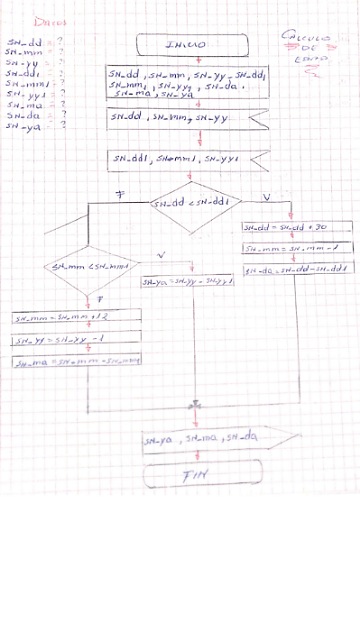 Datos
SN_dd = ?
SN_mm = ?
SN_yy = ?
SN_dd1 = ?
SN_mm1 = ?
SN_yy1 = ?
SN_ma = ?
SN_da = ?
SN_ya = ?
CALCULO
DE
EDAD
INICIO
SN_dd, SN_mm, SN_yy, SN_dd1
SN_mm1, SN_yy1, SN_da,
SN_ma, SN_ya
SN_dd, SN_mm, SN_yy
SN_dd1, SN_mm1, SN_yy1
SN_dd < SN_dd1
F
V
SN_dd = SN_dd + 30
SN_mm = SN_mm - 1
SN_da = SN_dd - SN_dd1
SN_mm < SN_mm1
V
SN_ya = SN_yy - SN_yy1
F
SN_mm = SN_mm + 12
SN_yy = SN_yy - 1
SN_ma = SN_mm - SN_mm1
SN_ya, SN_ma, SN_da
FIN